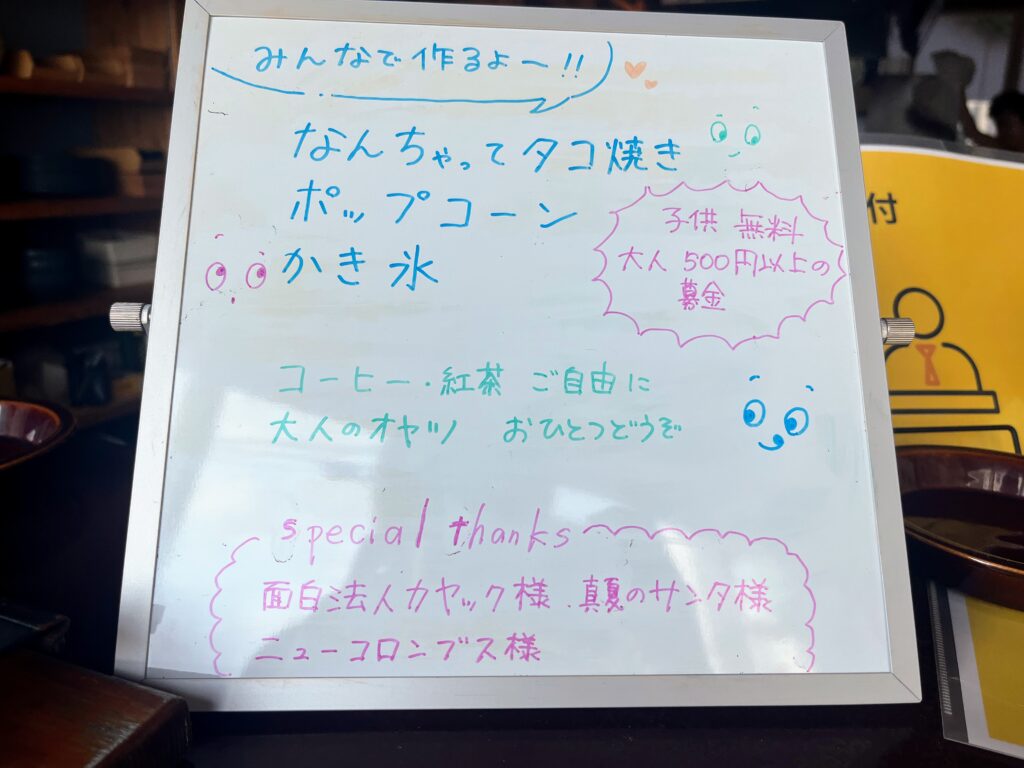 みんなで作るよ〜!!
なんちゃってタコ焼き
ポップコーン
かき氷
子供 無料
大人 500円以上の
募金
コーヒー・紅茶 ご自由に
大人のオヤツ おひとつどうぞ
special thanks
面白法人カヤック様・真夏のサンタ様
ニューコロンブス様
付